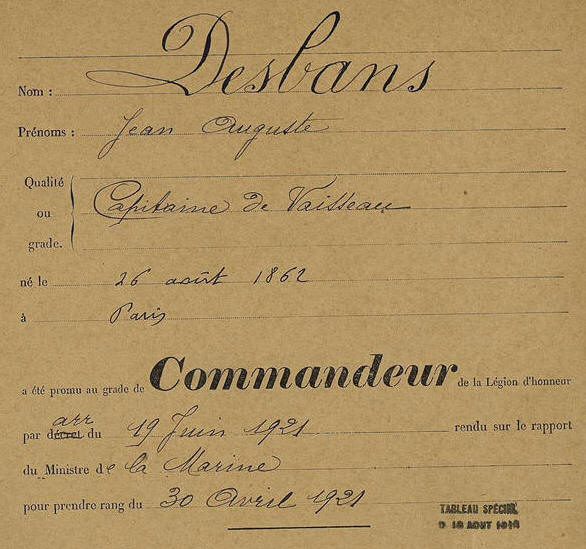 Nom : Desbans
Prénoms : Jean Auguste
Qualité
ou Capitaine de Vaisseau
grade.
né le 26 août 1862
à Paris
a été promu au grade de Commandeur de la Légion d'honneur
arr
par décret du 19 Juin 1921 rendu sur le rapport
du Ministre de la Marine
pour prendre rang du 30 Avril 1921
TABLEAU SPÉCIAL
AOUT